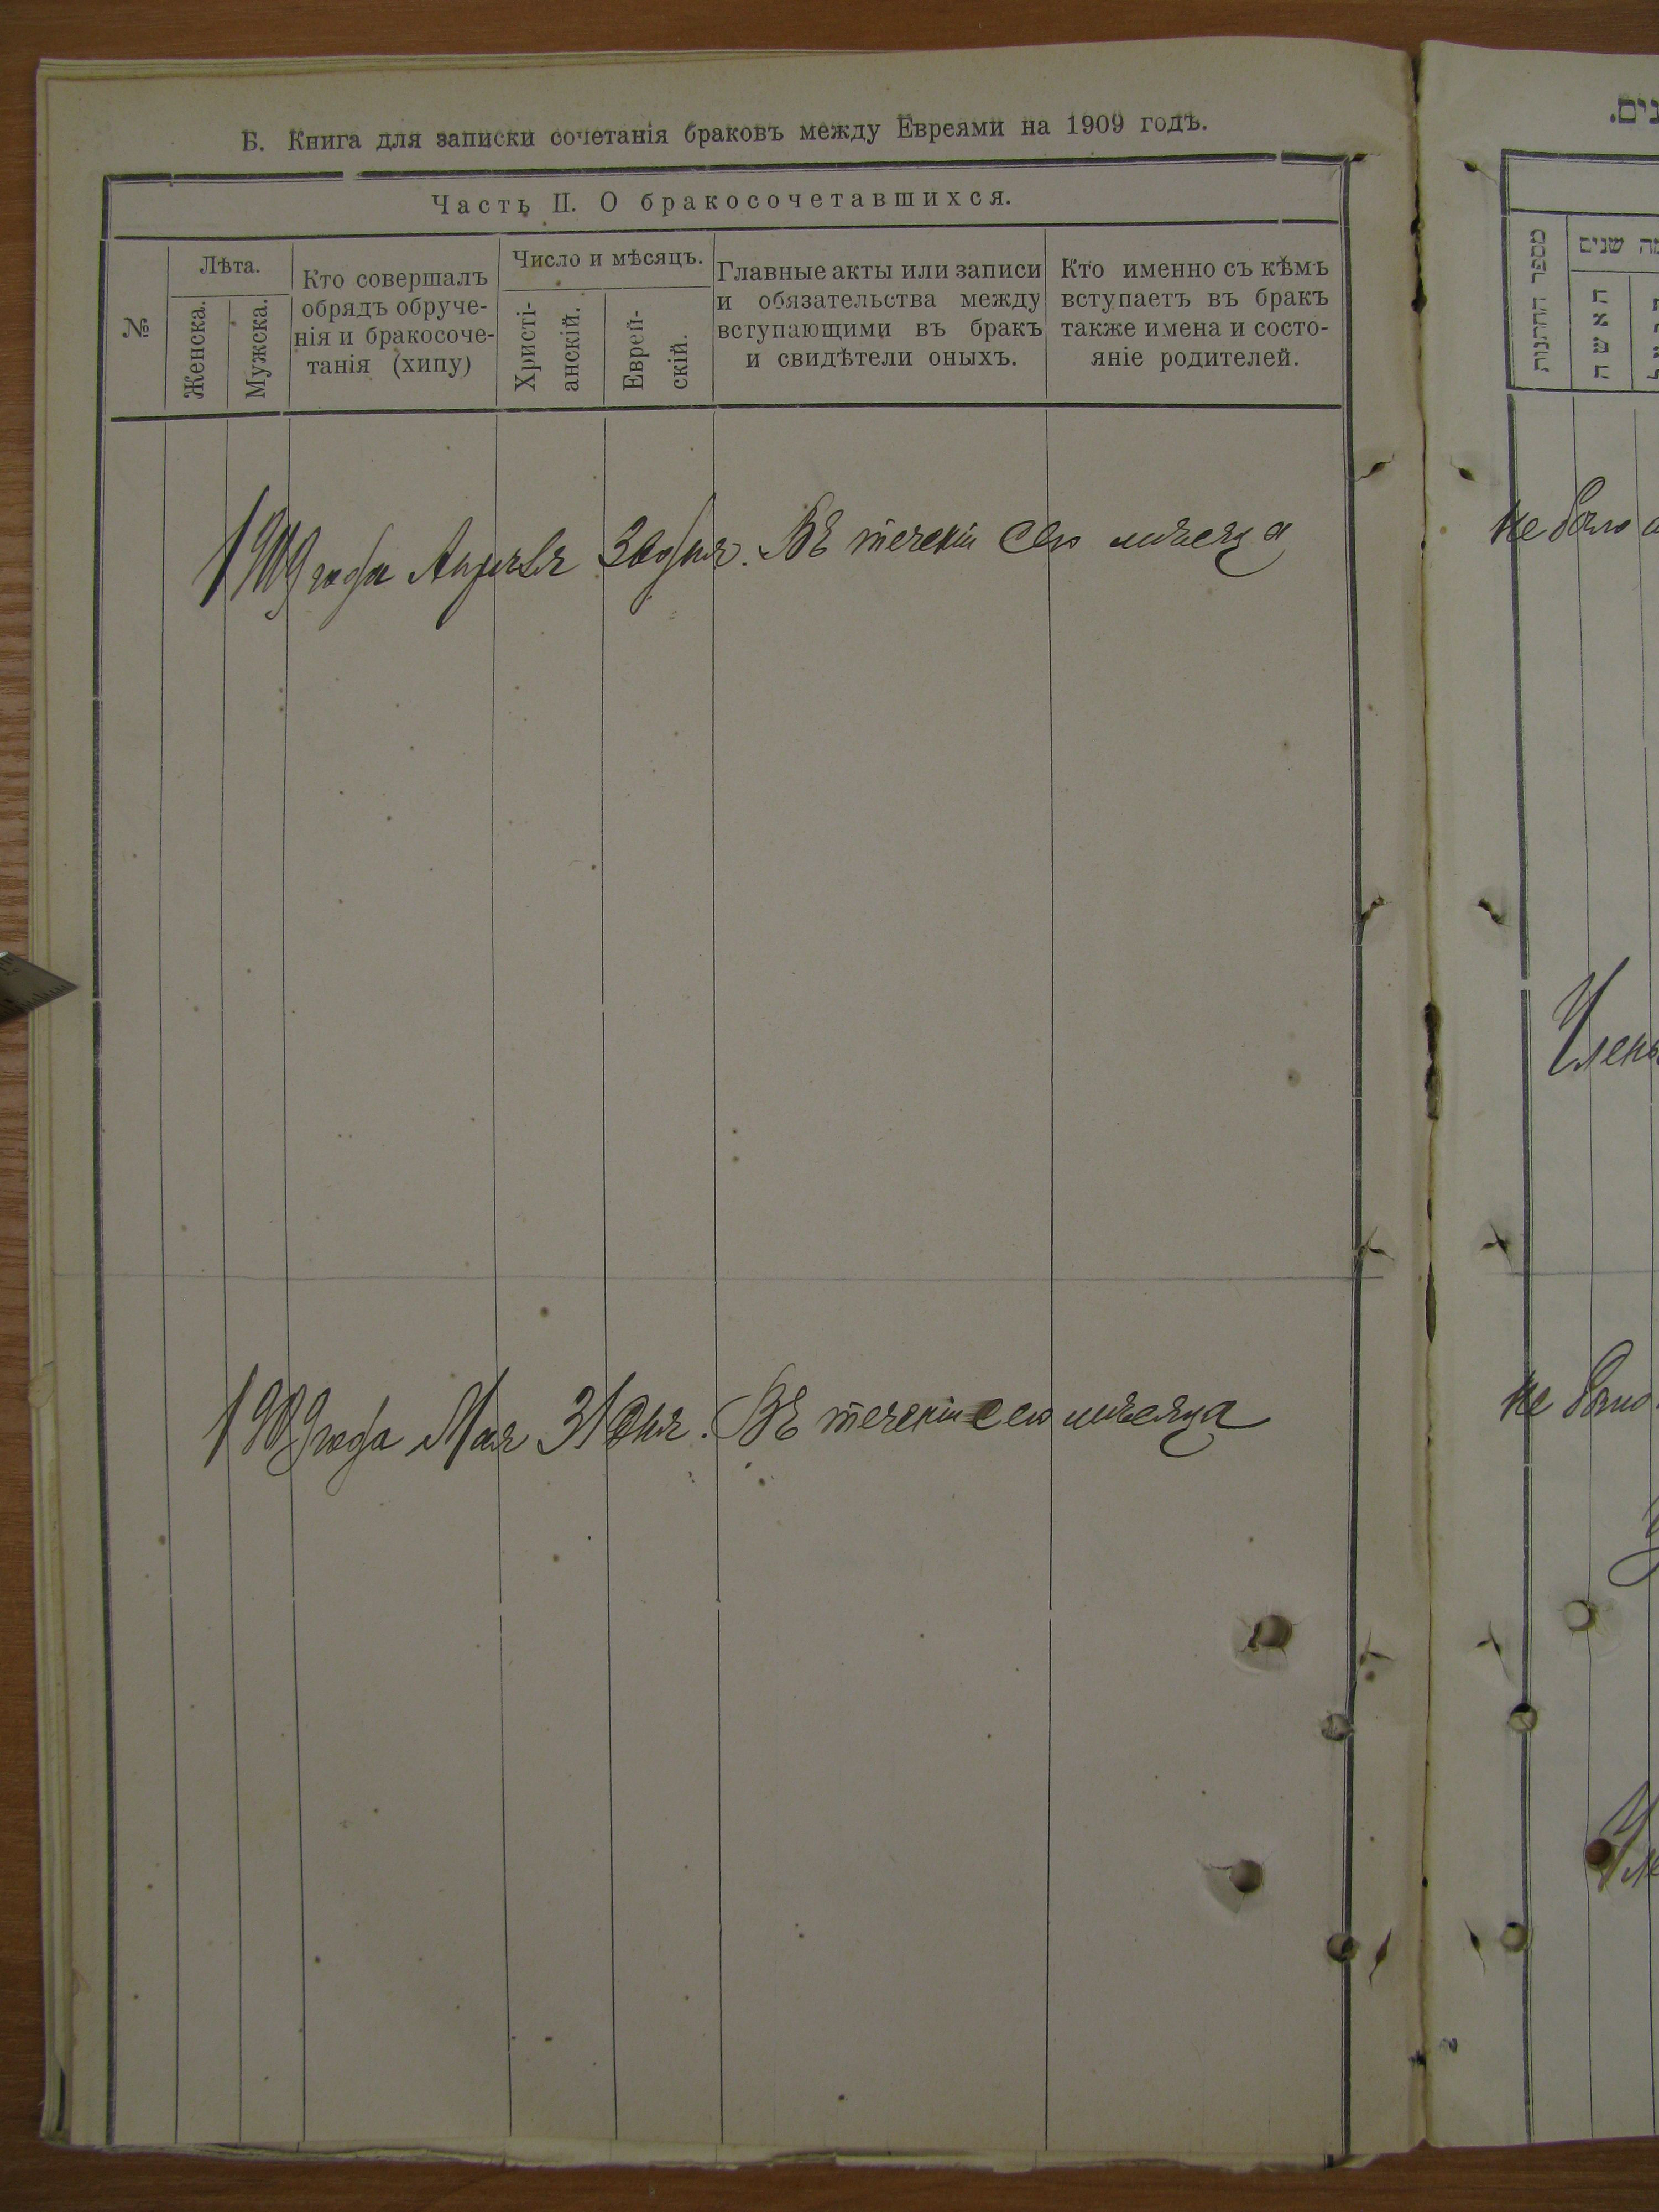 Б. Книга для записки сочетанія браковъ между Евреями на 1909 годъ.
Часть II. О бракосочетавшихся.
№
Лѣта.
Женска.
Мужска.
Кто совершалъ
обрядъ обруче-
нія и бракосоче-
танія (хипу)
Число и мѣсяцъ.
Христі-
анскій.
Еврей-
скій.
Главные акты или записи
и обязательства между
вступающими въ бракъ
и свидѣтели оныхъ.
Кто именно съ кѣмъ
вступаетъ въ бракъ
также имена и состо-
яніе родителей.
1909 года Апрѣля 30 дня. Въ теченіи сего мѣсяца
1909 года Мая 31 дня. Въ теченіи сего мѣсяца
מספר החתונות
שנים
האשה
не было
Член
не было